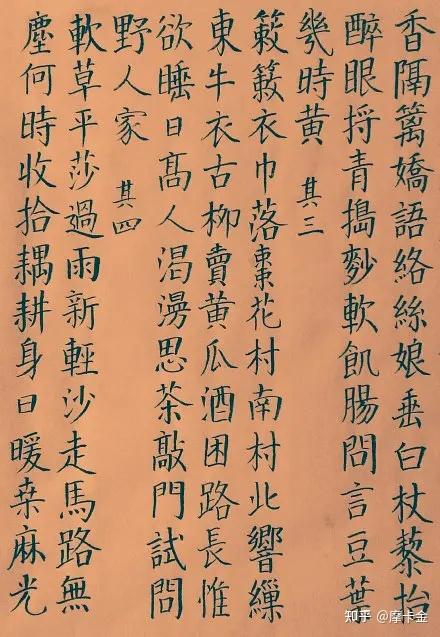 香隔籬嬌語絡絲娘垂白杖藜抬
醉眼捋青搗麨軟飢腸問言豆葉
幾時黄 其三
簌簌衣巾落棗花村南村北響繅
東牛衣古柳賣黄瓜酒困路長惟
欲睡日髙人渴漫思茶敲門試問
野人家 其四
軟草平莎過雨新輕沙走馬路無
塵何時收拾耦耕身日暖桒麻光
知乎 @摩卡金